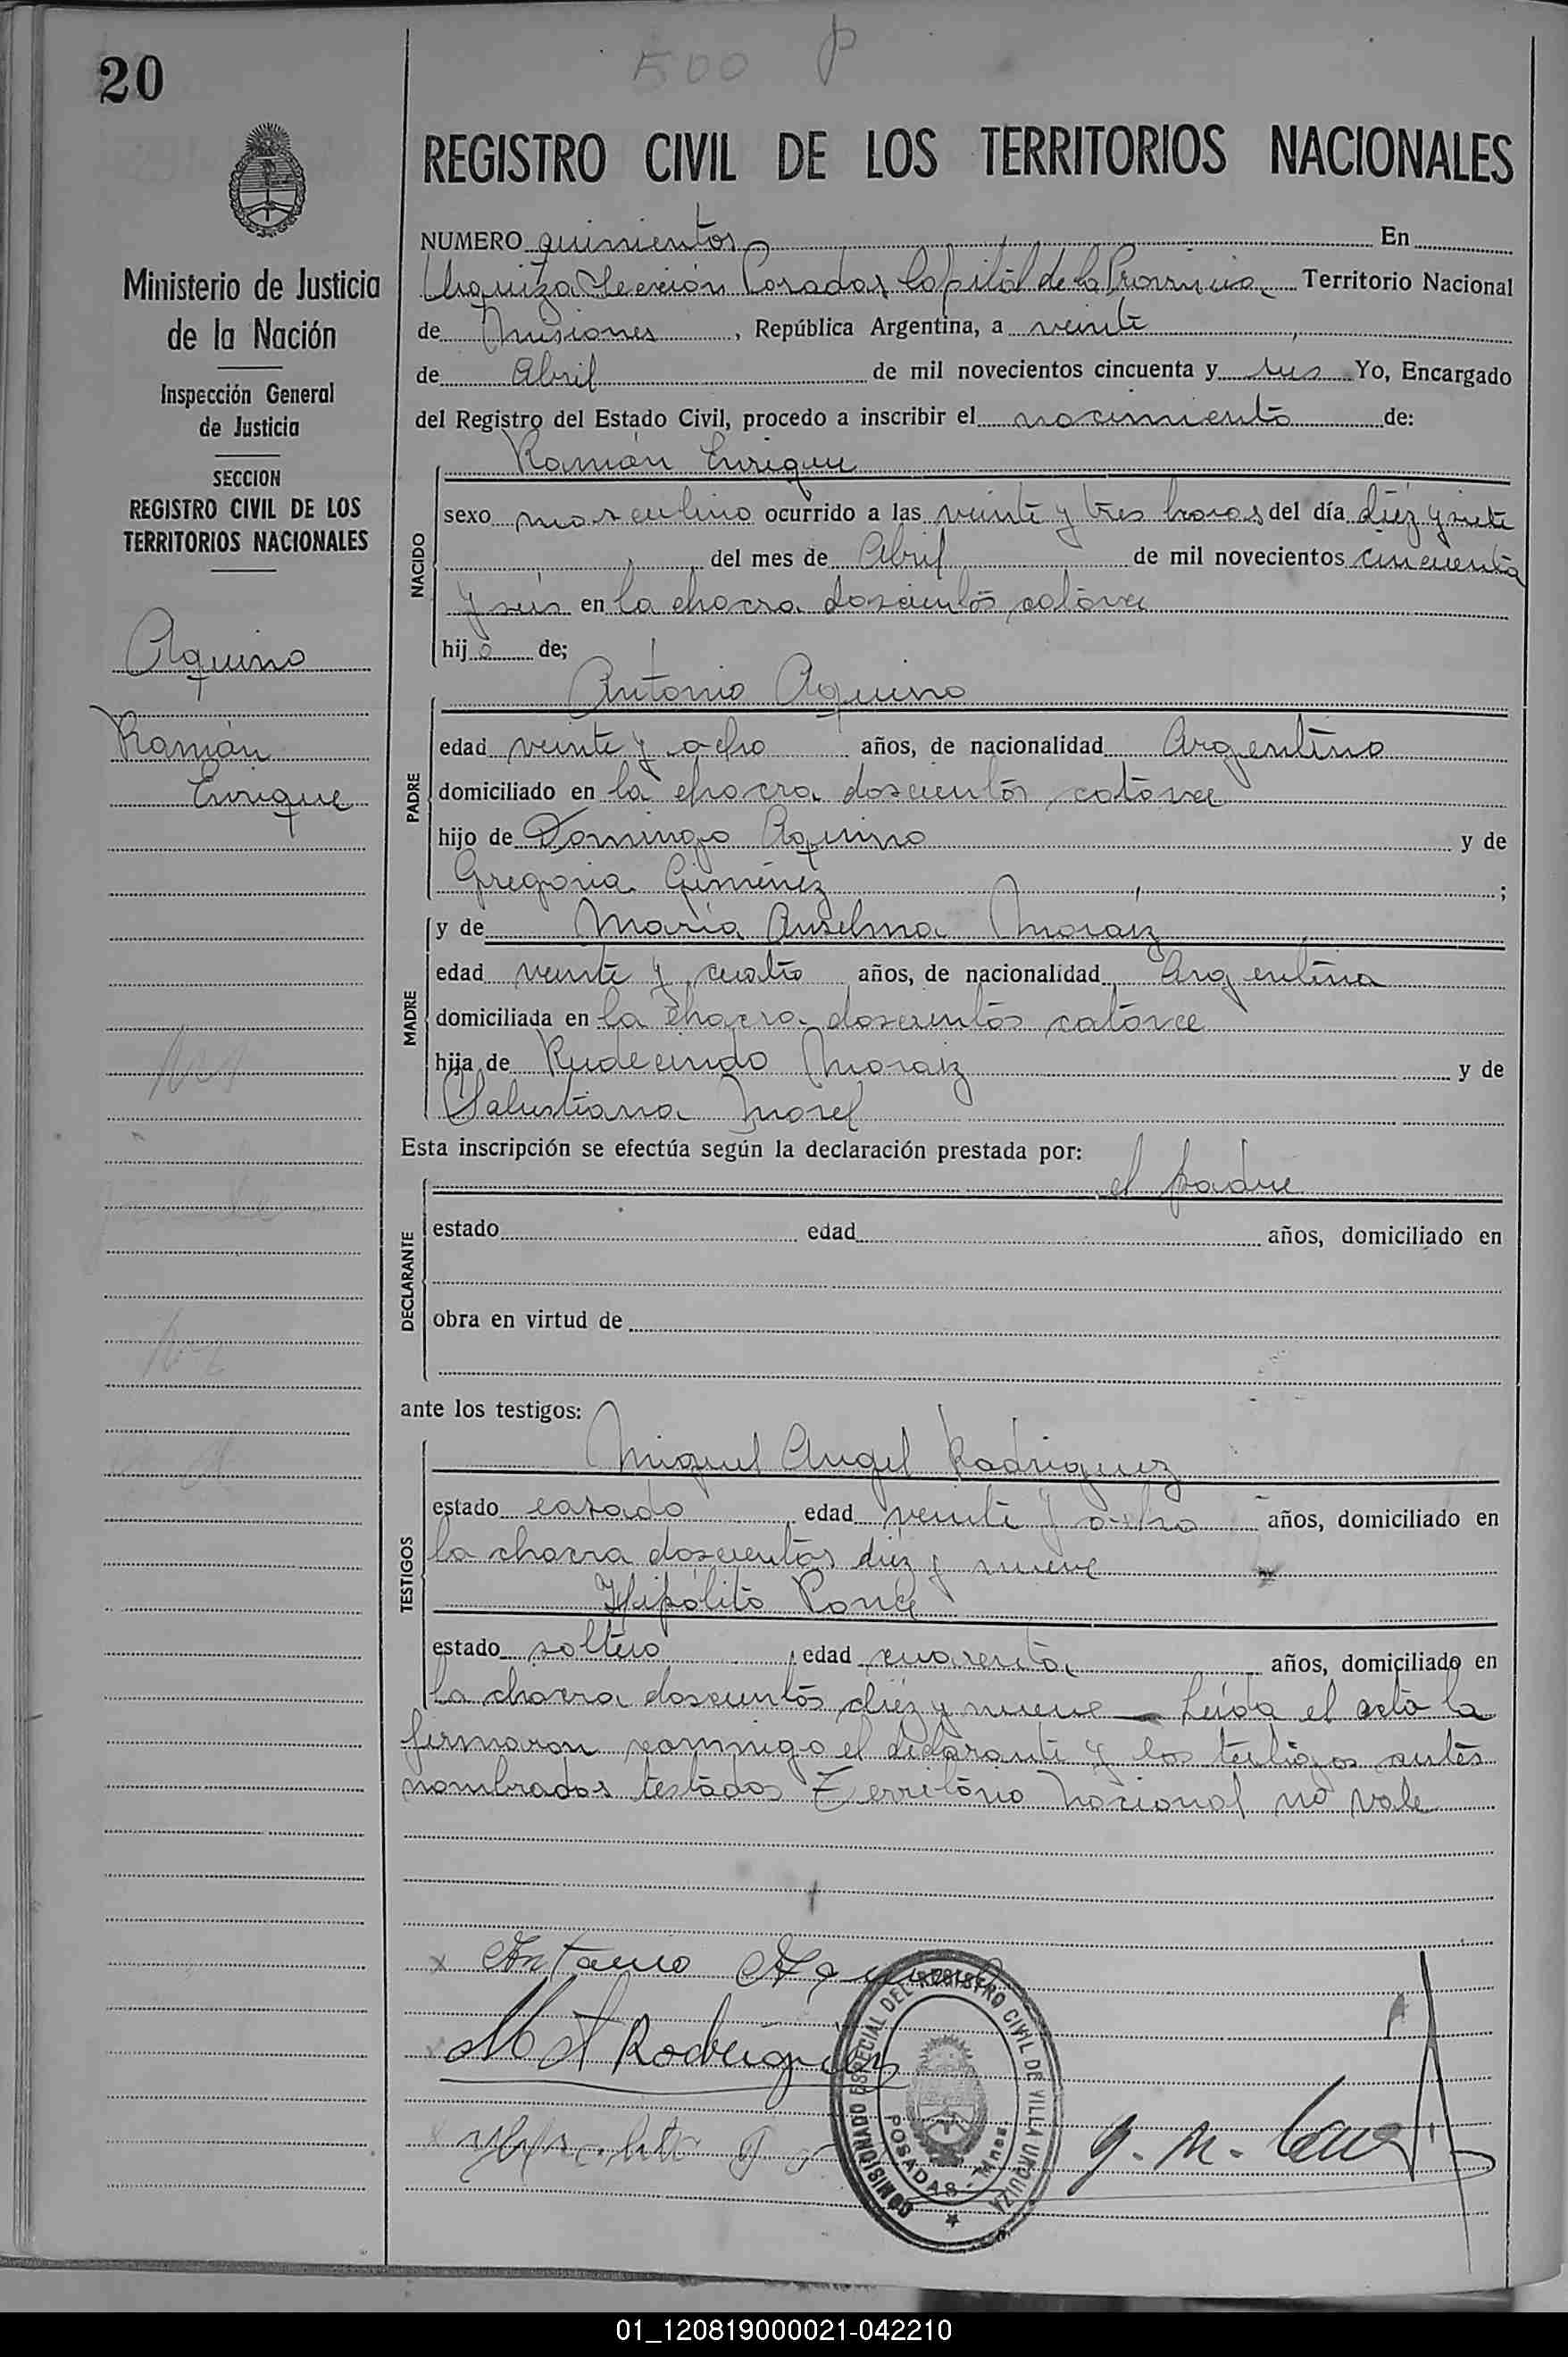 20
500
REGISTRO CIVIL DE LOS TERRITORIOS NACIONALES
Ministerio de Justicia
de la Nación
Inspección General
de Justicia
SECCION
REGISTRO CIVIL DE LOS
TERRITORIOS NACIONALES
Aquino
Ramón
Enrique
NUMERO quinientos En
Urquiza Sección Posadas Capital de la Provincia Territorio Nacional
de Misiones, República Argentina, a veinte
de Abril de mil novecientos cincuenta y seis Yo, Encargado
del Registro del Estado Civil, procedo a inscribir el nacimiento de:
NACIDO
Ramón Enrique
sexo masculino ocurrido a las veinte y tres horas del día diez y siete
del mes de Abril de mil novecientos cincuenta
y seis en la chacra doscientos catorce
hijo de;
PADRE
Antonio Aquino
edad veinte y ocho años, de nacionalidad Argentino
domiciliado en la chacra doscientos catorce
hijo de Domingo Aquino y de
Gregoria Giménez ;
MADRE
y de María Anselma Moraiz
edad veinte y cuatro años, de nacionalidad Argentina
domiciliada en la chacra doscientos catorce
hija de Rudecindo Moraiz y de
Salustiana Morel
Esta inscripción se efectúa según la declaración prestada por:
DECLARANTE
el padre
estado edad años, domiciliado en
obra en virtud de
ante los testigos:
TESTIGOS
Miguel Angel Rodriguez
estado casado edad veinte y ocho años, domiciliado en
la chacra doscientos diez y nueve
Hipólito Ponce
estado soltero edad cuarenta años, domiciliado en
la chacra doscientos diez y nueve Leída el acta la
firmaron conmigo el declarante y los testigos antes
nombrados testados Territorio Nacional no vale
Antonio Aquino
M A Rodriguez
COMISIONADO ESPECIAL DEL REGISTRO CIVIL DE VILLA URQUIZA
POSADAS - Mnes.
01_120819000021-042210